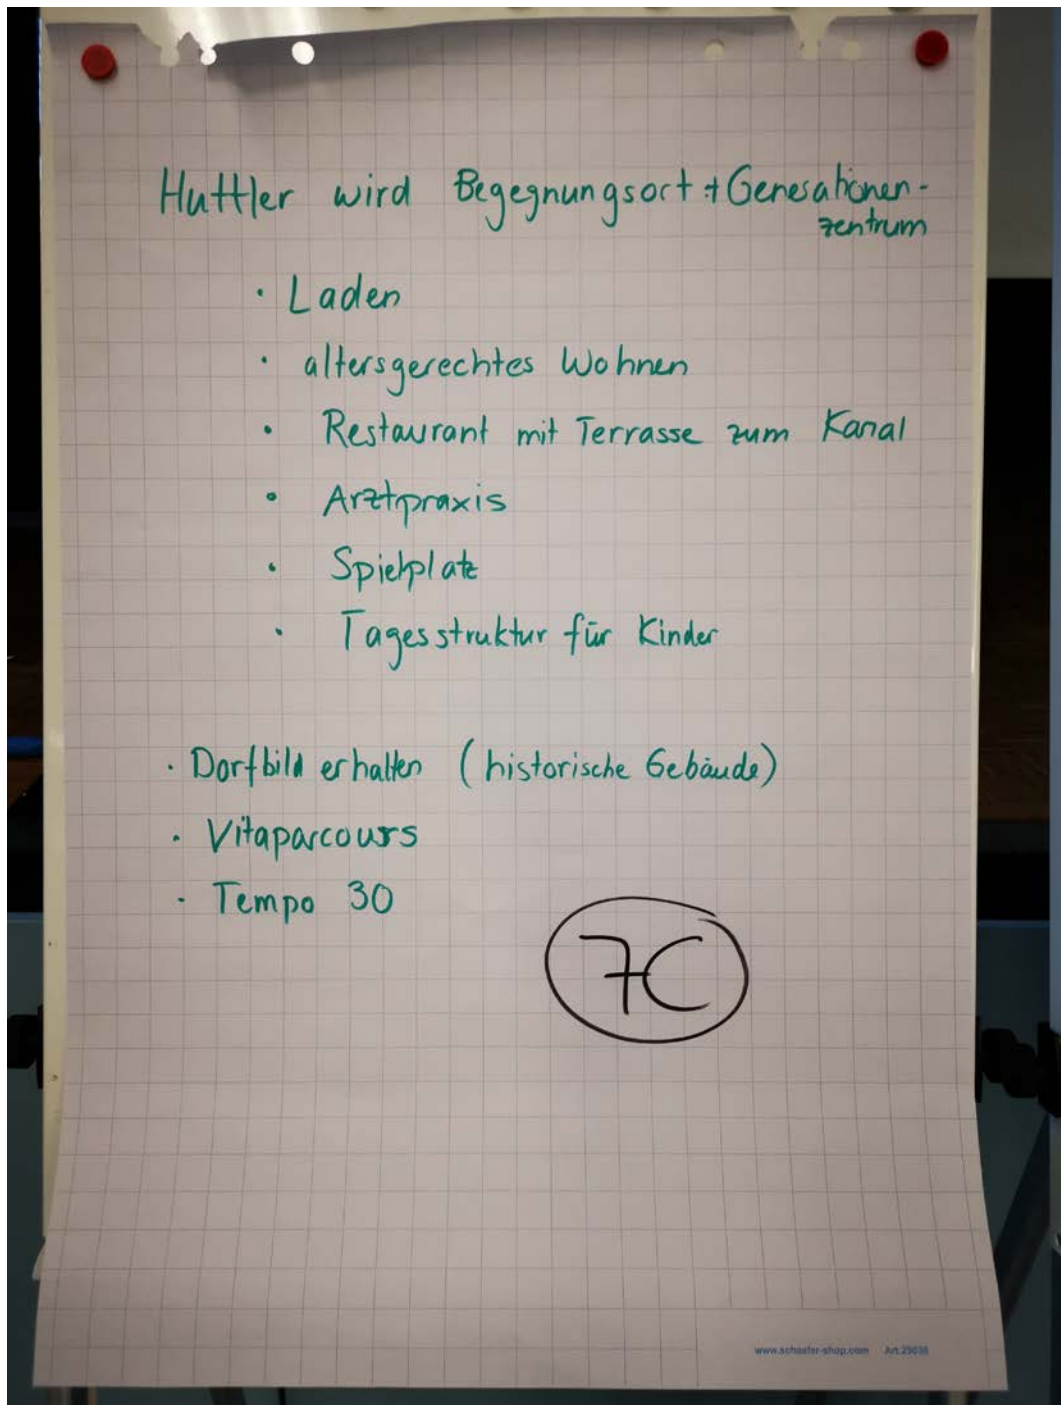 Huttler wird Begegnungsort + Generationen-
zentrum
· Laden
· altersgerechtes Wohnen
· Restaurant mit Terrasse zum Kanal
· Arztpraxis
· Spielplatz
· Tagesstruktur für Kinder
· Dorfbild erhalten (historische Gebäude)
· Vitaparcours
· Tempo 30
7C
www.schaefer-shop.com Art.25036